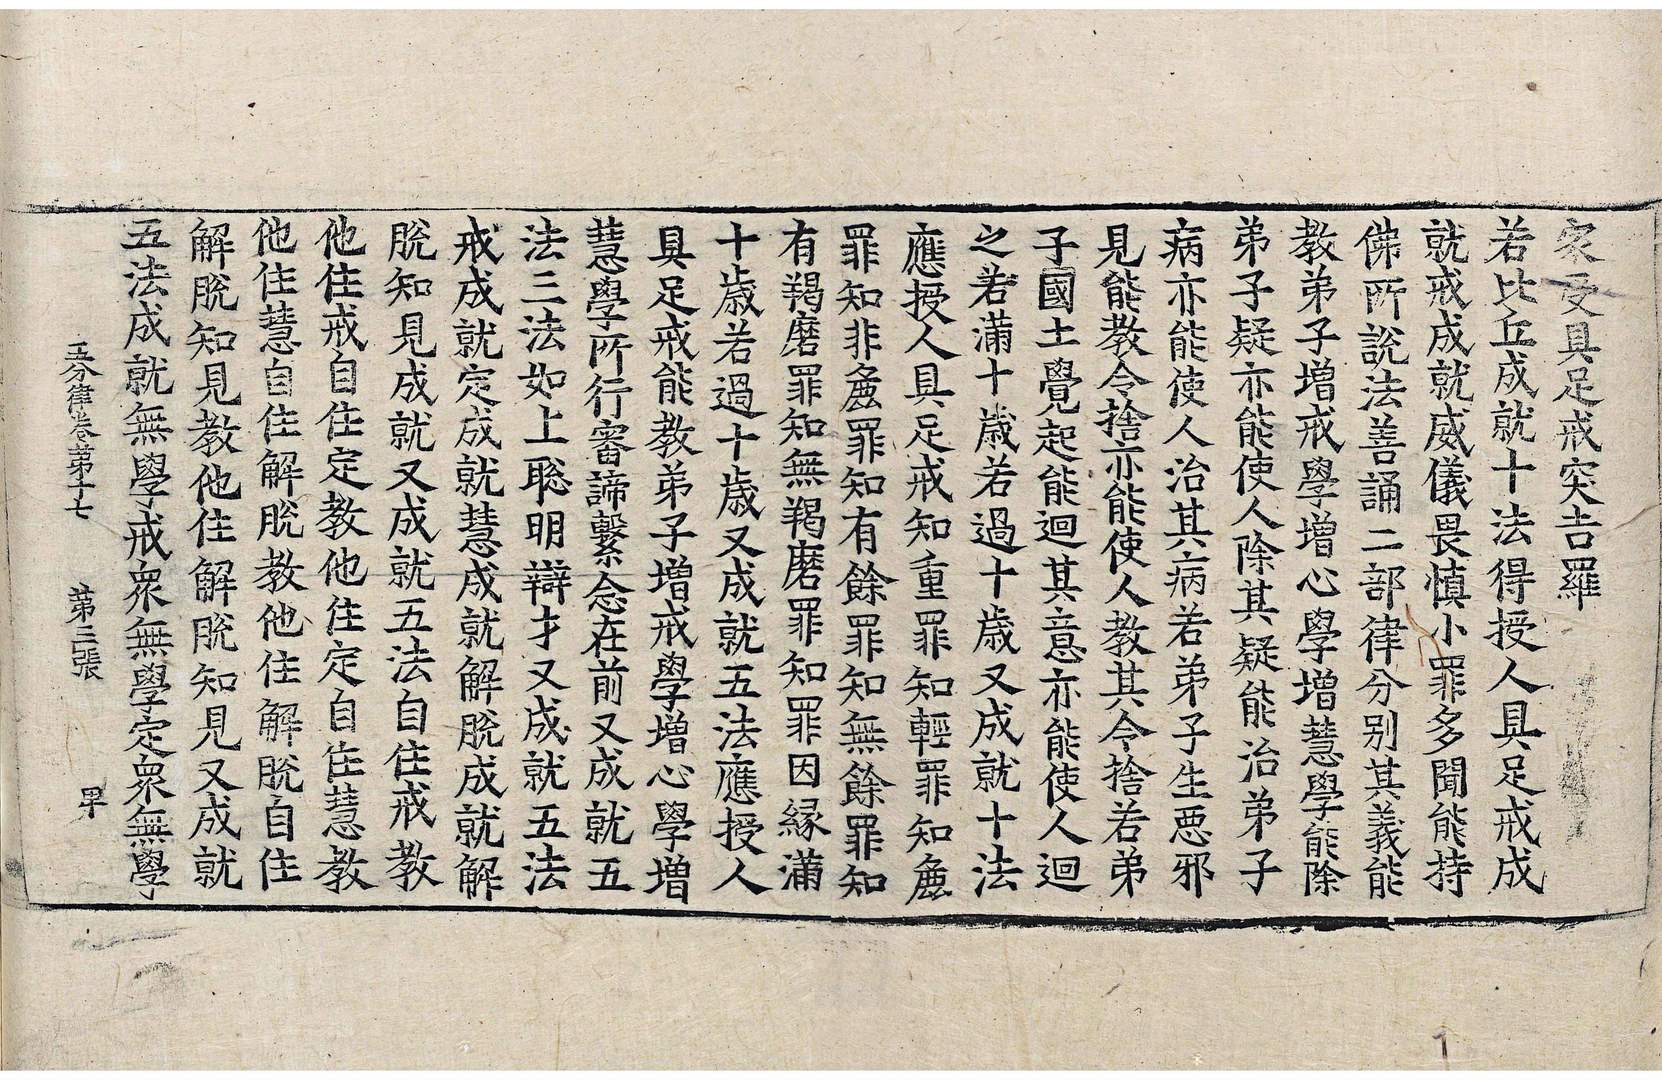 家受具足戒突吉羅
若比丘成就十法得授人具足戒成
就戒成就威儀畏慎小罪多聞能持
佛所說法善誦二部律分別其義能
教弟子增戒學增心學增慧學能除
弟子疑亦能使人除其疑能治弟子
病亦能使人治其病若弟子生惡邪
見能教令捨亦能使人教其令捨若弟
子國土覺起能迴其意亦能使人迴
之若滿十歲若過十歲又成就十法
應授人具足戒知重罪知輕罪知麁
罪知非麁罪知有餘罪知無餘罪知
有羯磨罪知無羯磨罪知罪因緣滿
十歲若過十歲又成就五法應授人
具足戒能教弟子增戒學增心學增
慧學所行審諦繫念在前又成就五
法三法如上聡明辯才又成就五法
戒成就定成就慧成就解脫成就解
脫知見成就又成就五法自住戒教
他住戒自住定教他住定自住慧教
他住慧自住解脫教他住解脫自住
解脫知見教他住解脫知見又成就
五法成就無學戒衆無學定衆無學
五分律卷第十七 第三張 早